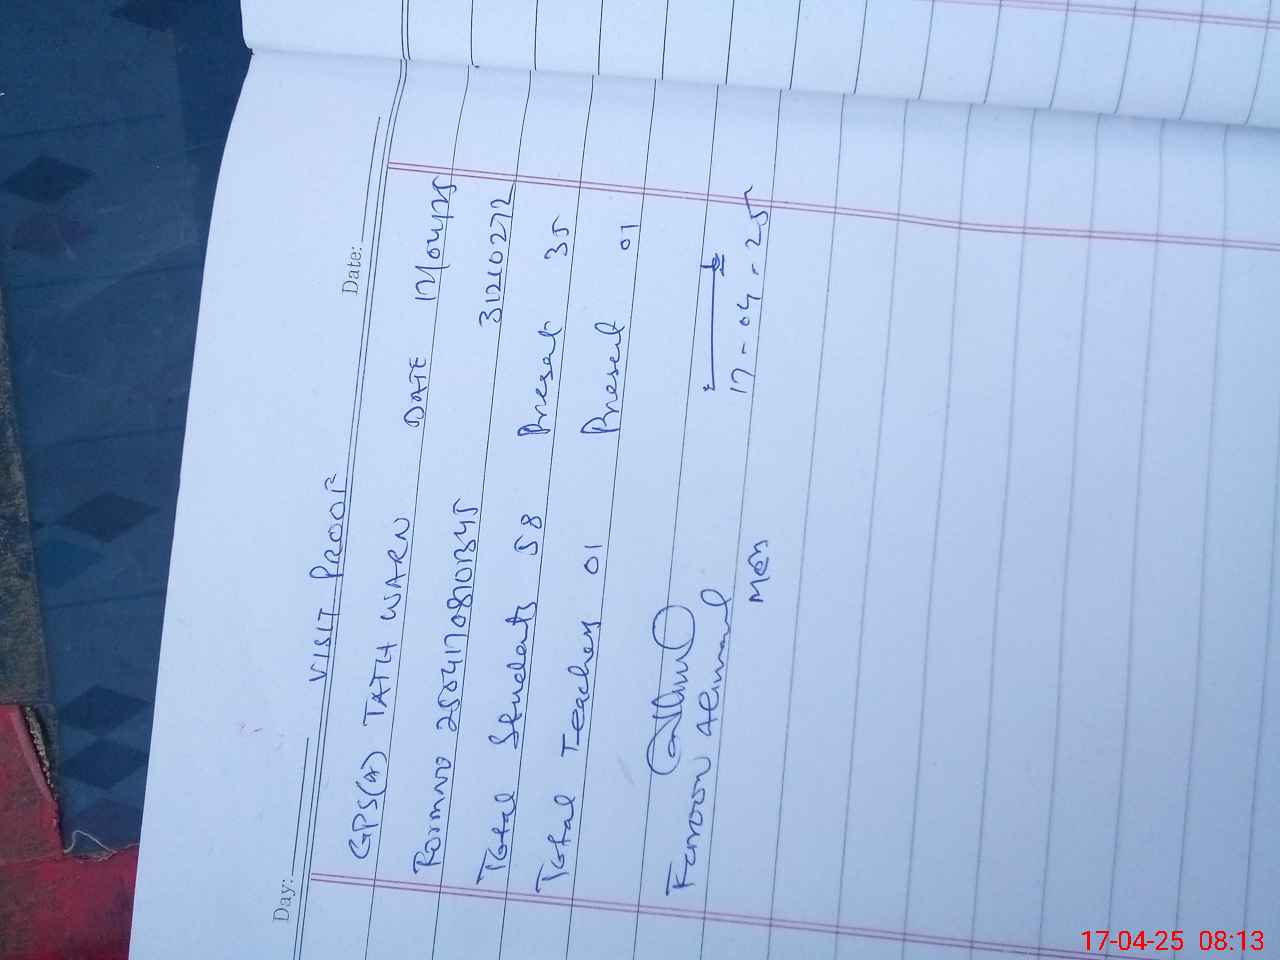 Day: Date:
VISIT PROOF
GPS(A) TATH WARN DATE 17/04/25
Form no 25041708101345 31210272
Total Students 58 Present 35
Total Teachers 01 Present 01
Farroon Ahmad
17-04-25
17-04-25 08:13